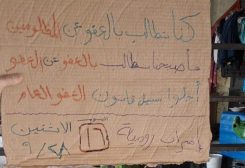 كنا نطالب بالعفو عن المظلومين
فأصبحنا نطالب بالعفو عن العفو
أخلوا سبيل قانون العفو العام
رومية الاثنين
٩/٢٨